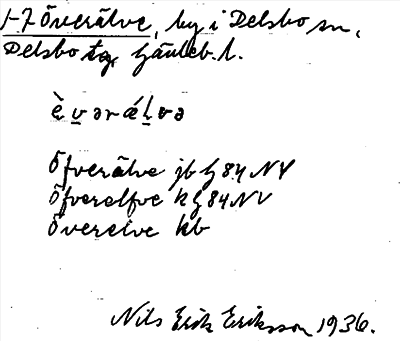 1-7 Överälve, by i Delsbo sn,
Delsbo tg, Gävleb. l.
è v ər ǽ l v ə
Öfverälve jb G 84 NV
Öfverelfve k G 84 NV
Överelve kb
Nils Erik Eriksson 1936.